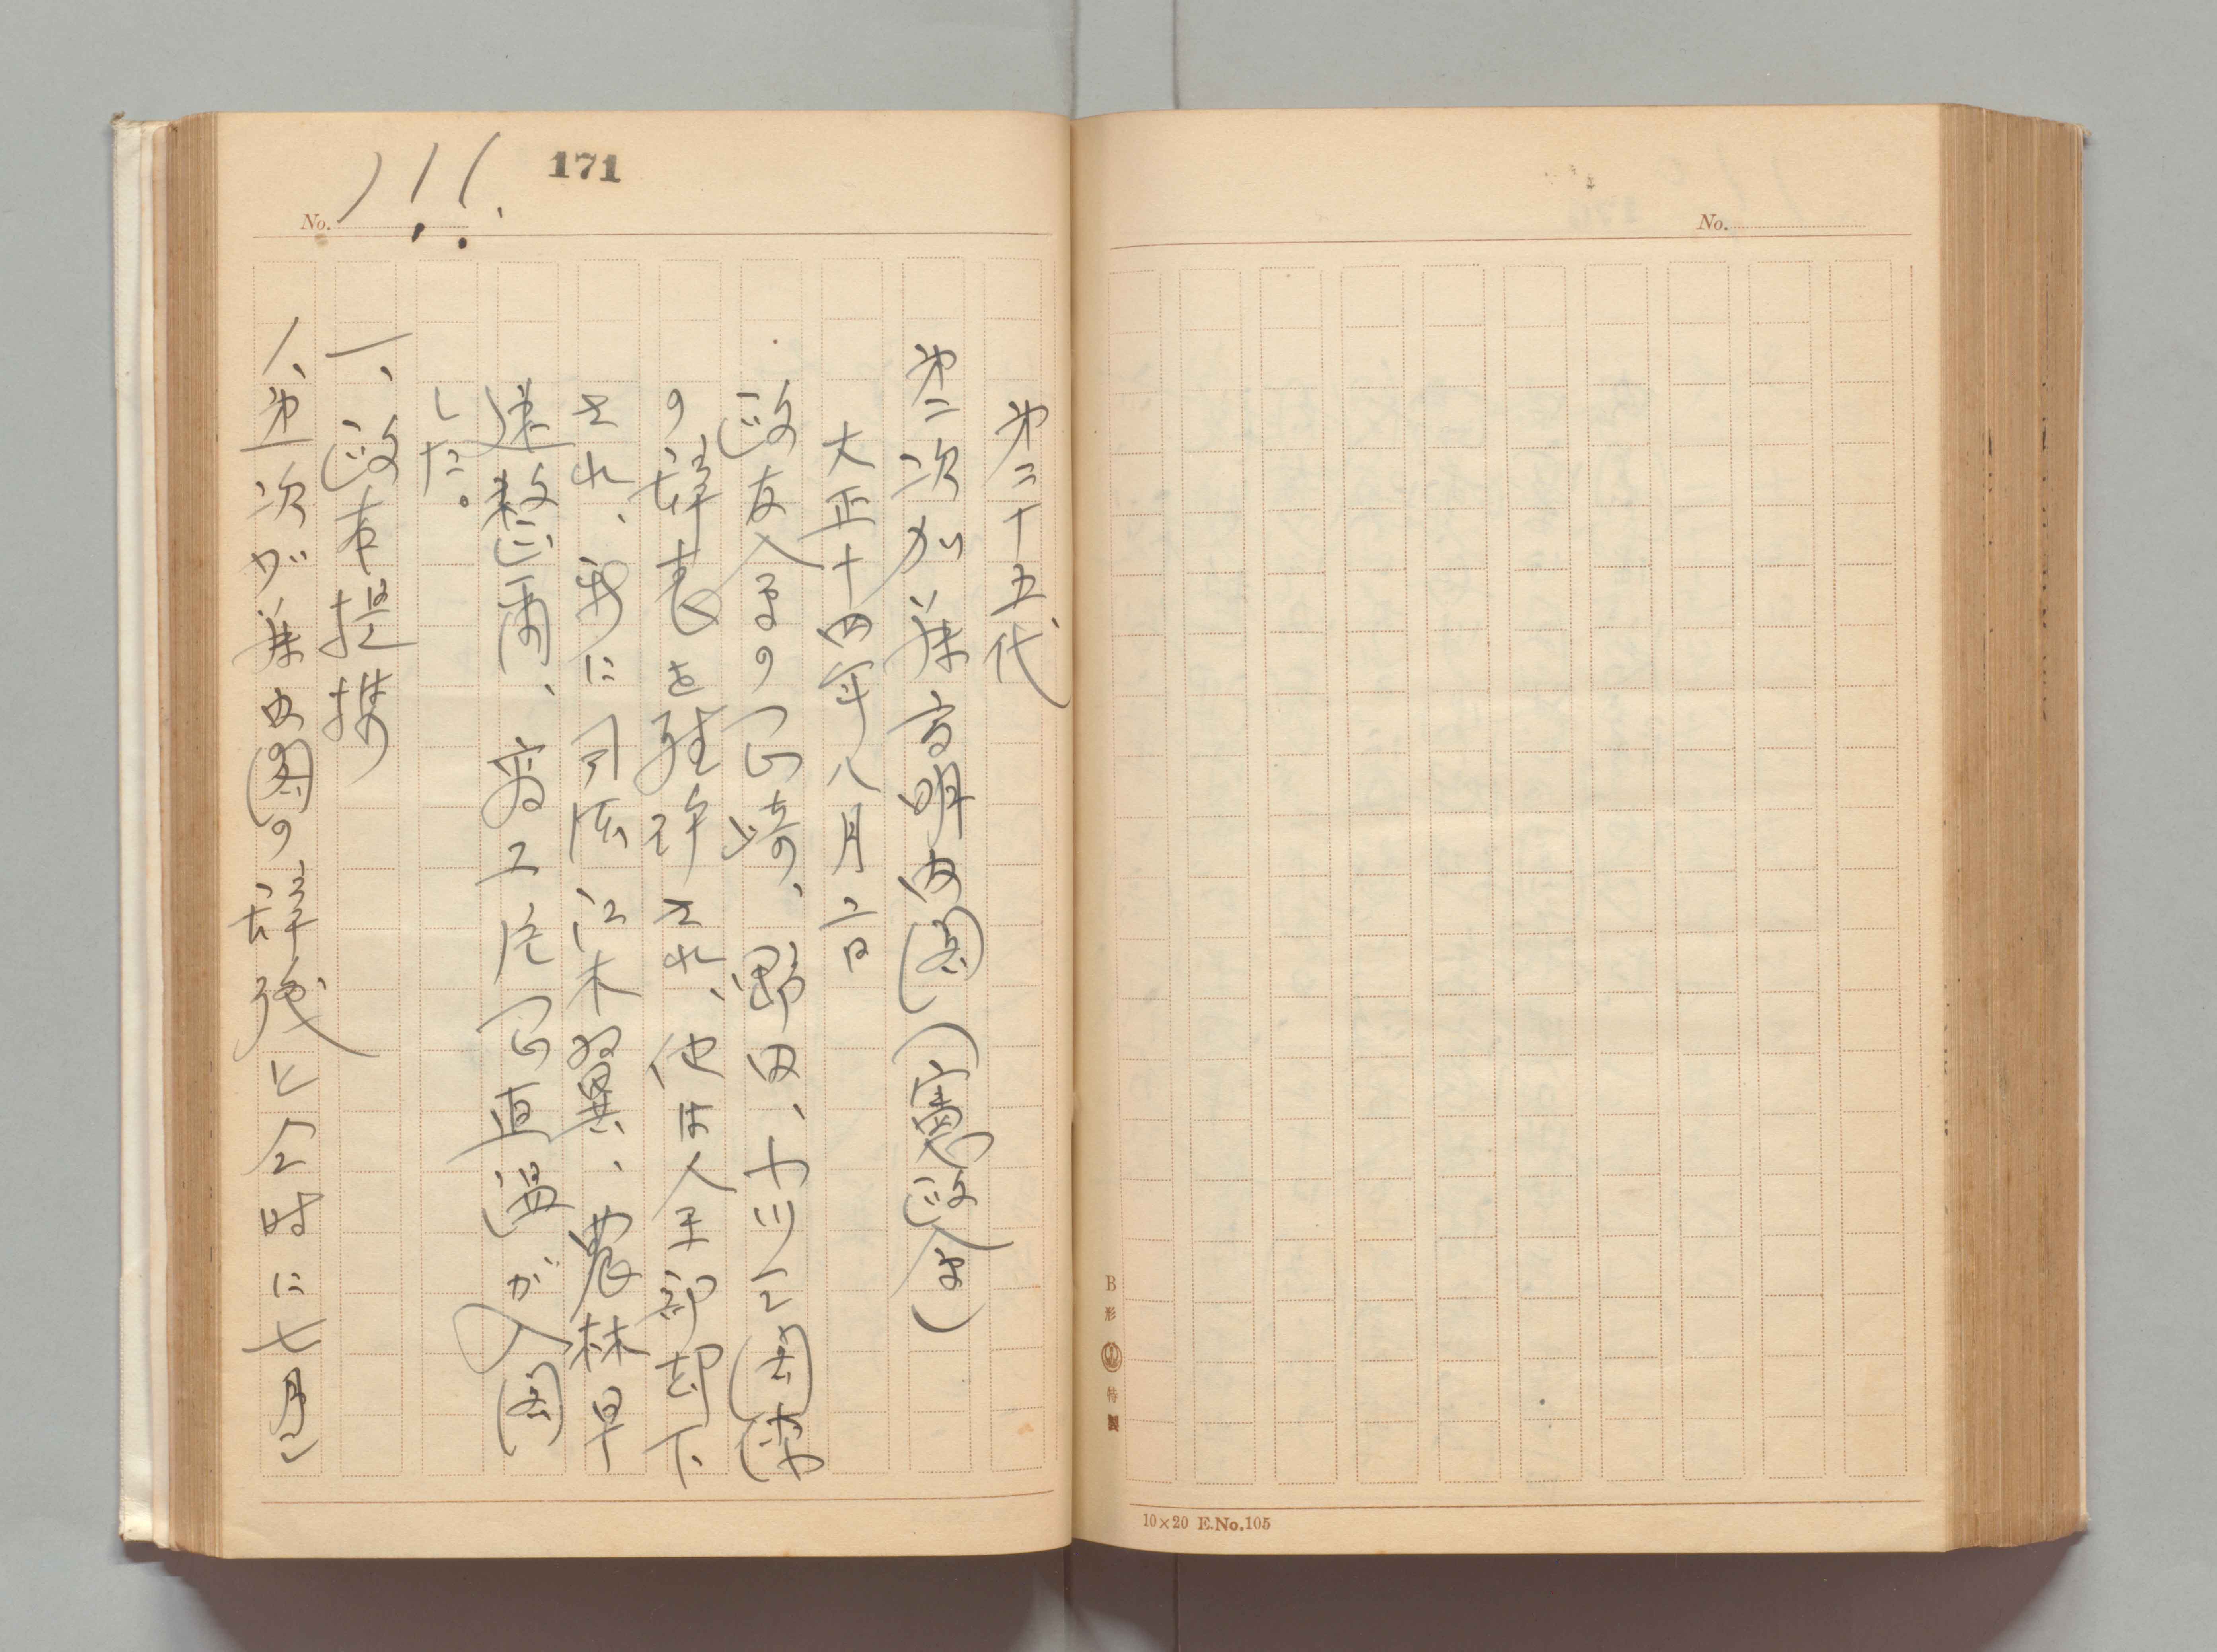 No.
B形 特製
10×20 E.No.105
171
No. 111.
第二十五代
第二次加藤高明内閣(憲政会)
大正十四年八月二日
政友会系の岡崎、野田、小川三閣僚
の辞表を聴許され、他は全部却下
され、新に司法江木翼、農林早
速整爾、商工片岡直温が入閣
した。
一、政本提携
1、第一次加藤内閣の辞職と仝時に七月